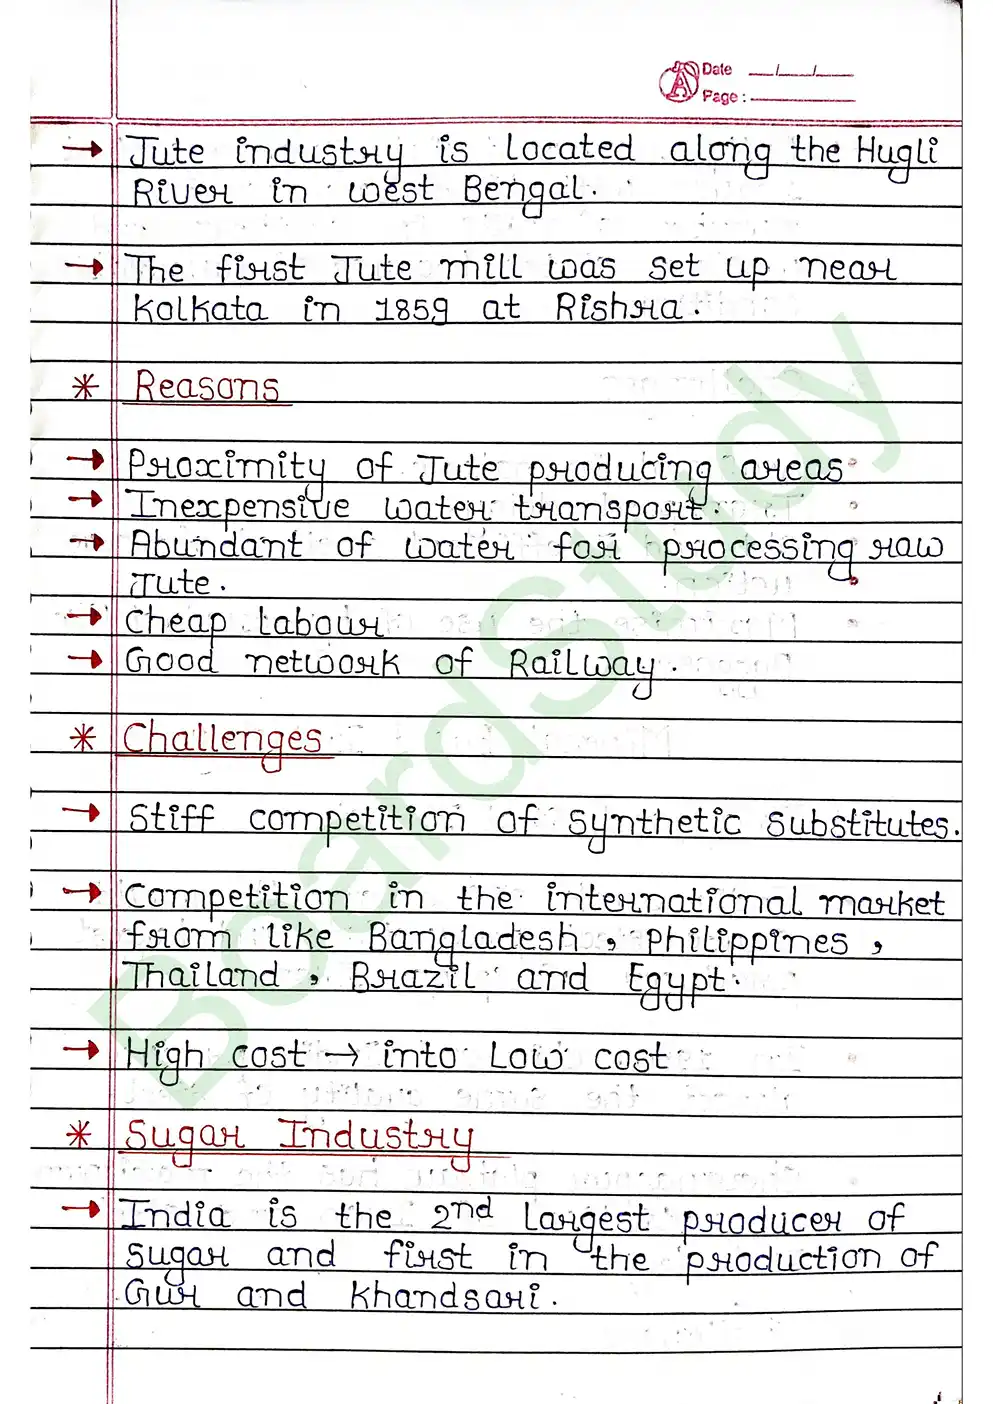 Date __/__/__
Page :
→ Jute industry is located along the Hugli
River in west Bengal.
→ The first Jute mill was set up near
Kolkata in 1859 at Rishra.
* Reasons
→ Proximity of Jute producing areas
→ Inexpensive water transport.
→ Abundant of water for processing raw
Jute.
→ Cheap Labour
→ Good network of Railway.
* Challenges
→ Stiff competition of synthetic substitutes.
→ Competition in the international market
from like Bangladesh, Philippines,
Thailand, Brazil and Egypt.
→ High cost → into Low cost
* Sugar Industry
→ India is the 2nd Largest producer of
sugar and first in the production of
Gur and Khandsari.
BoardStudy